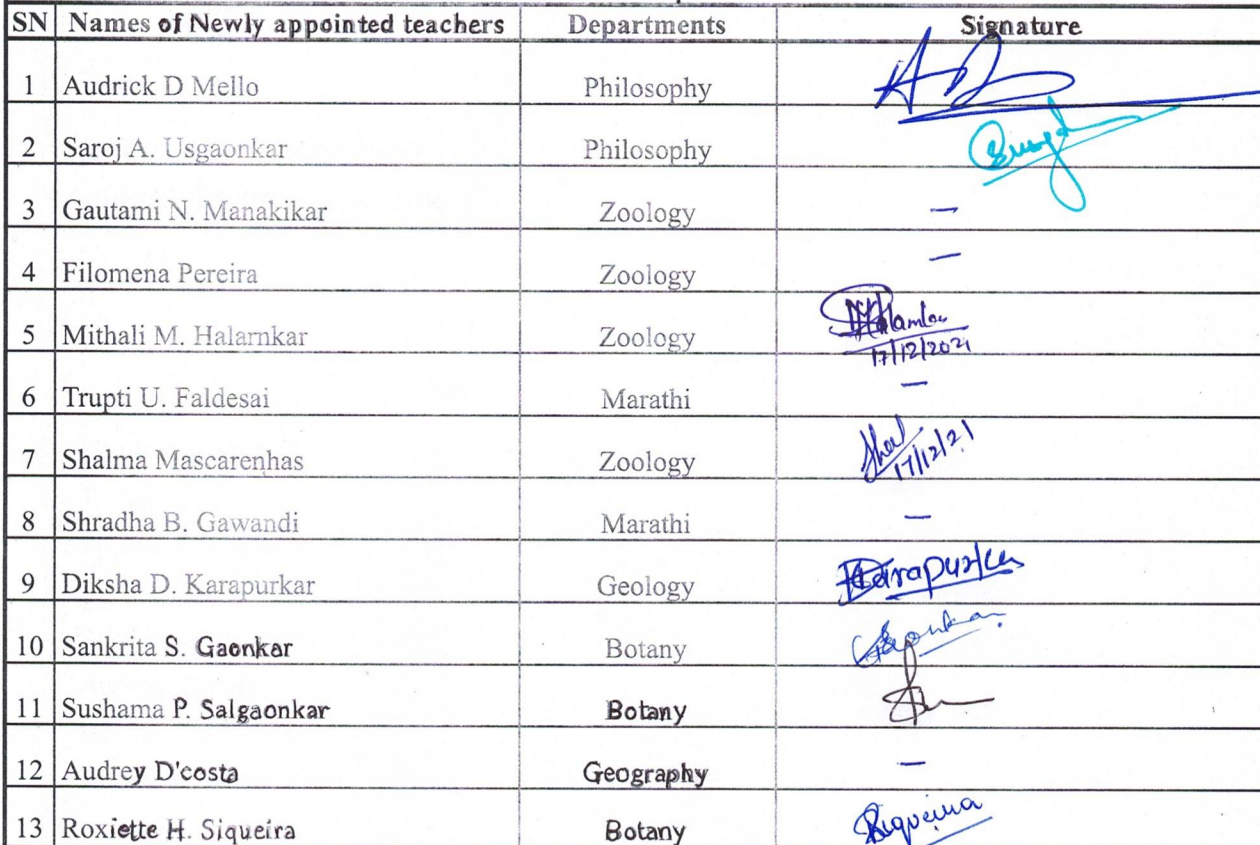 SN Names of Newly appointed teachers Departments Signature
1 Audrick D Mello Philosophy
2 Saroj A. Usgaonkar Philosophy
3 Gautami N. Manakikar Zoology —
4 Filomena Pereira Zoology —
5 Mithali M. Halarnkar Zoology
17/12/2021
6 Trupti U. Faldesai Marathi —
7 Shalma Mascarenhas Zoology 17/12/21
8 Shradha B. Gawandi Marathi —
9 Diksha D. Karapurkar Geology
10 Sankrita S. Gaonkar Botany
11 Sushama P. Salgaonkar Botany
12 Audrey D'costa Geography —
13 Roxiette H. Siqueira Botany Siqueira